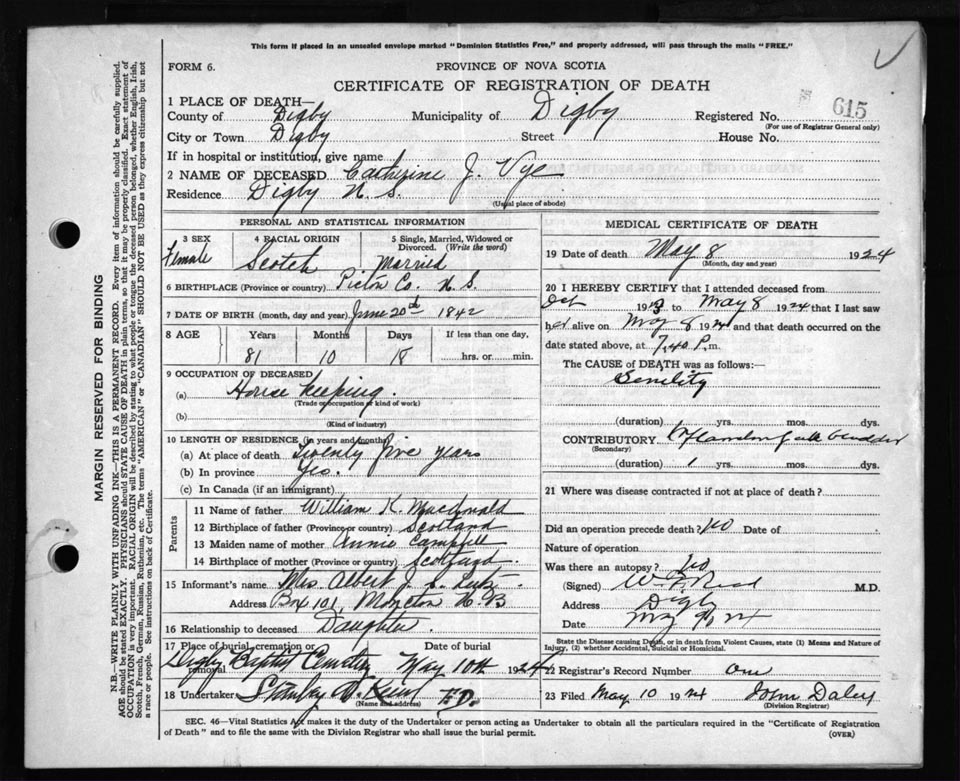 This form if placed in an unsealed envelope marked "Dominion Statistics Free," and properly addressed, will pass through the mails "FREE."
FORM 6.
PROVINCE OF NOVA SCOTIA
CERTIFICATE OF REGISTRATION OF DEATH
1 PLACE OF DEATH—
County of Digby Municipality of Digby Registered No. 615
(For use of Registrar General only)
City or Town Digby Street House No.
If in hospital or institution, give name
2 NAME OF DECEASED Catherine J. Vye
Residence Digby N. S.
(Usual place of abode)
PERSONAL AND STATISTICAL INFORMATION
3 SEX 4 RACIAL ORIGIN 5 Single, Married, Widowed or Divorced. (Write the word)
Female Scotch Married
6 BIRTHPLACE (Province or country) Pictou Co. N. S.
7 DATE OF BIRTH (month, day and year) June 20th 1842
8 AGE Years Months Days If less than one day,
81 10 18 hrs. or min.
9 OCCUPATION OF DECEASED
(a) House Keeping.
(Trade or occupation or kind of work)
(b)
(Kind of industry)
10 LENGTH OF RESIDENCE (in years and months)
(a) At place of death Twenty five years
(b) In province Yes.
(c) In Canada (if an immigrant)
Parents
11 Name of father William K. MacDonald
12 Birthplace of father (Province or country) Scotland
13 Maiden name of mother Annie Campbell
14 Birthplace of mother (Province or country) Scotland
15 Informant's name Mrs. Albert J. S.
Address Box 101, Moncton N. B
16 Relationship to deceased Daughter.
17 Place of burial, cremation or removal Digby Baptist Cemetery May 10th 1924
18 Undertaker Stanley F.D.
(Name and address)
MEDICAL CERTIFICATE OF DEATH
19 Date of death May 8 1924
(Month, day and year)
20 I HEREBY CERTIFY that I attended deceased from
Oct 1923 to May 8 1924 that I last saw
her alive on May 8 1924 and that death occurred on
date stated above, at 7.40 P. m.
The CAUSE OF DEATH was as follows:—
Senility
(duration) yrs. mos. dys.
CONTRIBUTORY
(Secondary)
(duration) 1 yrs. mos. dys.
21 Where was disease contracted if not at place of death?
Did an operation precede death? No Date of
Nature of operation
Was there an autopsy? No
(Signed) M.D.
Address Digby
Date May 9 24
State the Disease causing Death, or in death from Violent Causes, state (1) Means and Nature of Injury, (2) whether Accidental, Suicidal or Homicidal.
22 Registrar's Record Number One
23 Filed May 10 1924 John Daley
(Division Registrar)
SEC. 46—Vital Statistics Act makes it the duty of the Undertaker or person acting as Undertaker to obtain all the particulars required in the "Certificate of Registration
of Death" and to file the same with the Division Registrar who shall issue the burial permit.
(OVER)
MARGIN RESERVED FOR BINDING
N.B.—WRITE PLAINLY WITH UNFADING INK—THIS IS A PERMANENT RECORD. Every item of information should be carefully supplied.
AGE should be stated EXACTLY. PHYSICIANS should STATE CAUSE OF DEATH in plain terms, so that it may be properly classified. Exact statement of
OCCUPATION is very important. RACIAL ORIGIN will be described by stating to what people or tongue the deceased person belonged, whether English, Irish,
Scotch, French, German, Russian, Ruthenian, etc. The terms "AMERICAN" or "CANADIAN" SHOULD NOT BE USED as they express citizenship but not
a race or people. See instructions on back of Certificate.